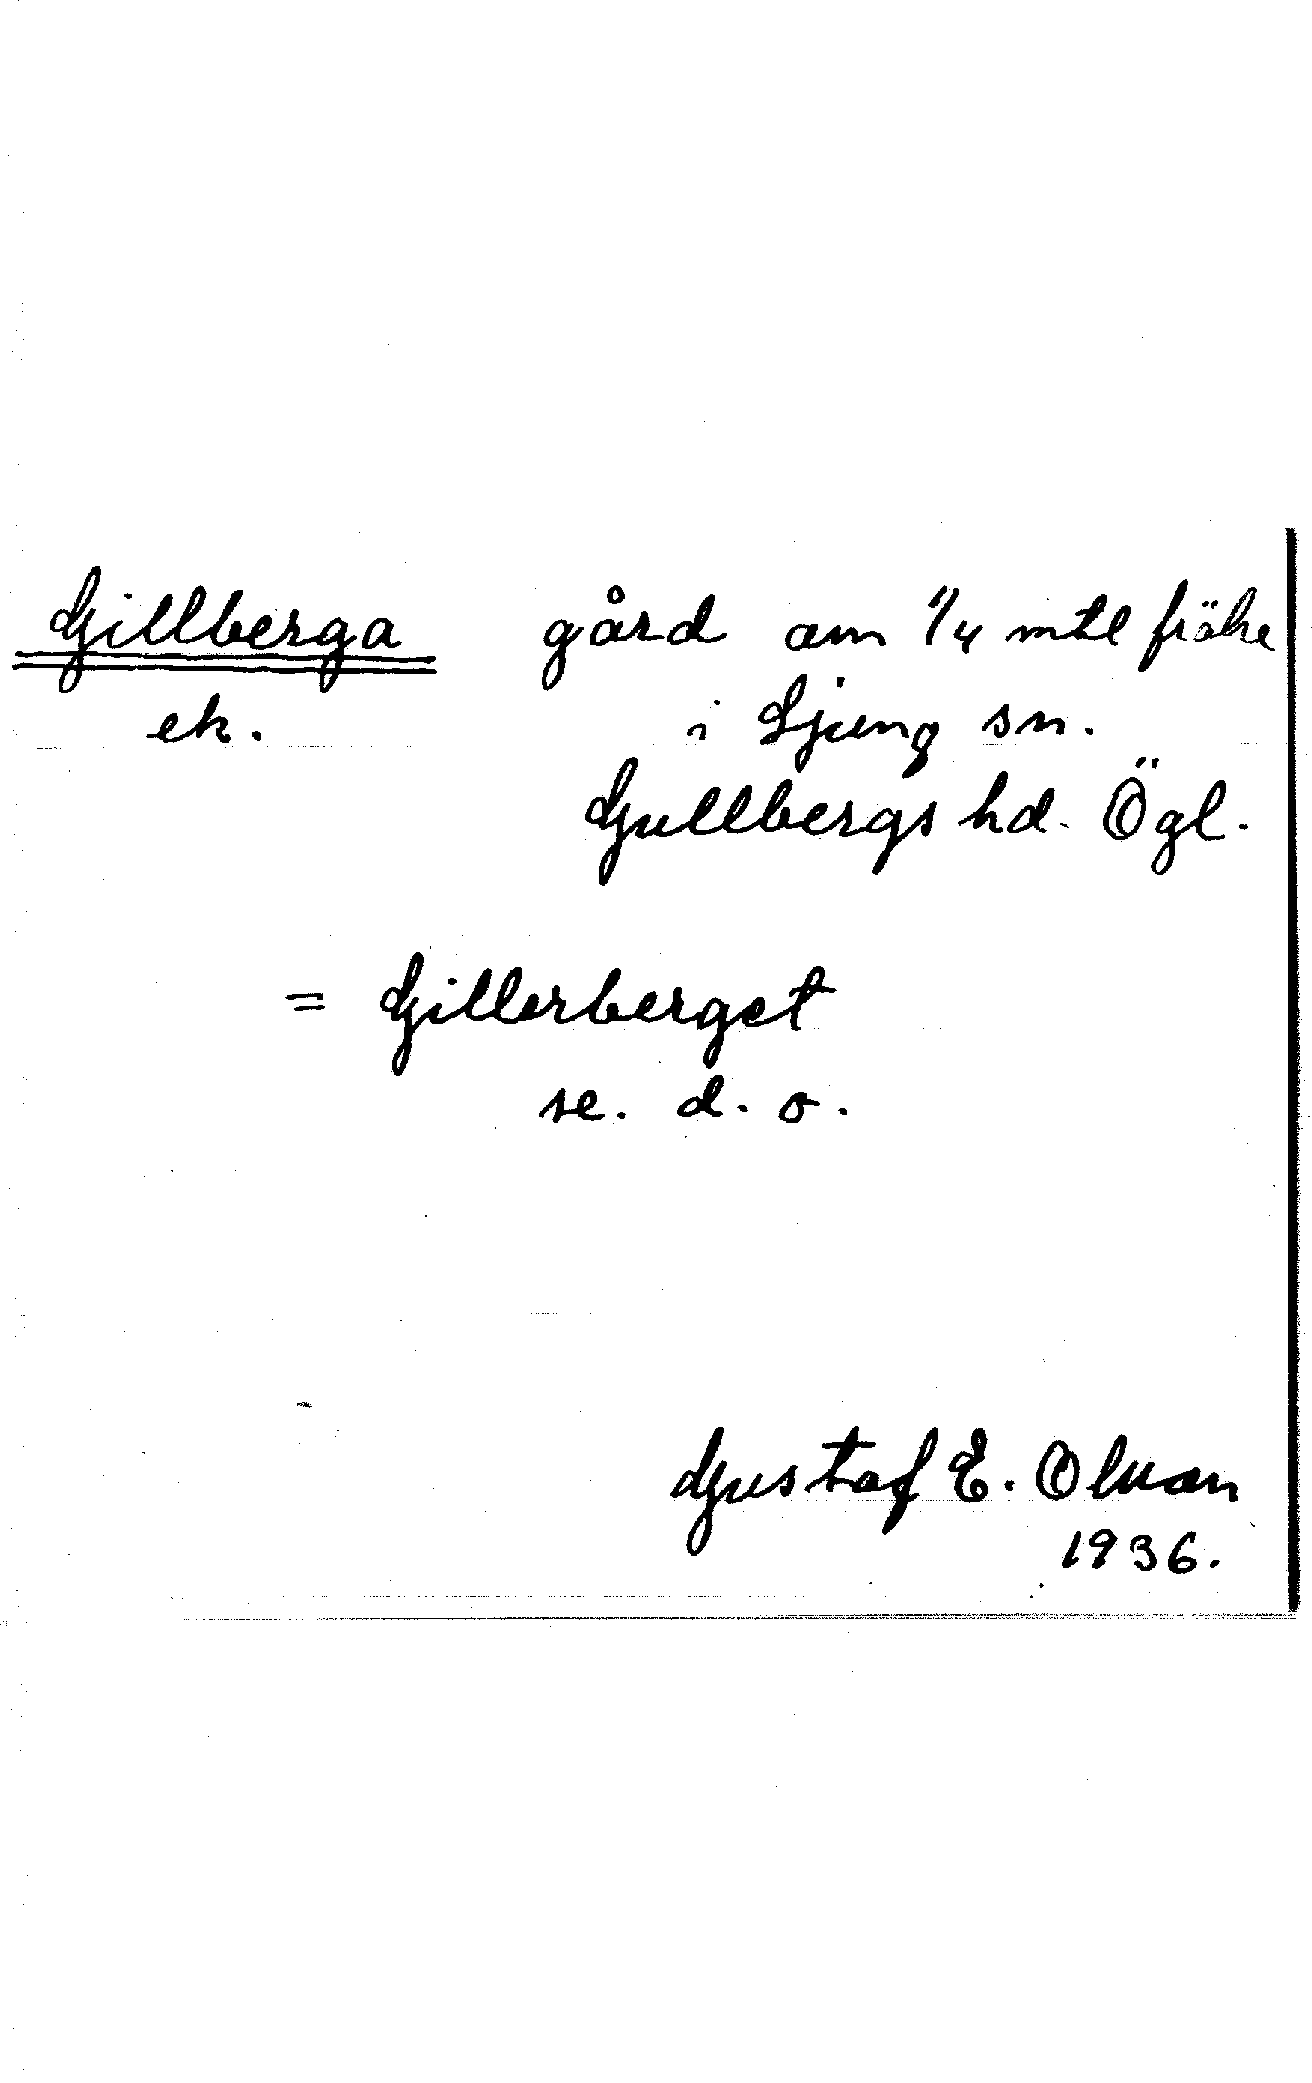 Gillberga gård om 1/4 mtl frälse
ek. i Ljung sn.
Gullbergs hd. Ögl.
= Gillerberget
se. d. o.
Gustaf E. Olson
1936.